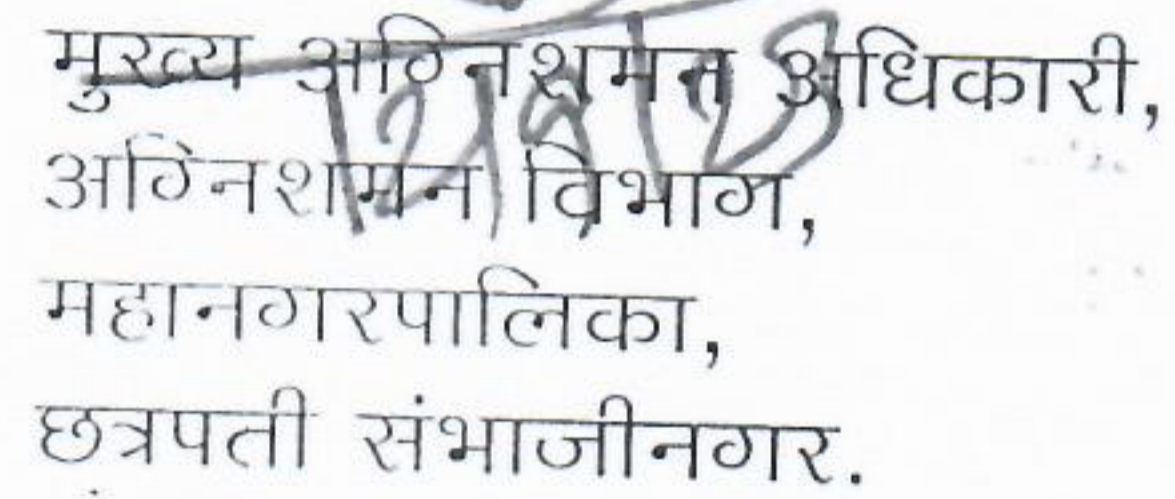 मुख्य अग्निशमन अधिकारी,
अग्निशमन विभाग,
महानगरपालिका,
छत्रपती संभाजीनगर.